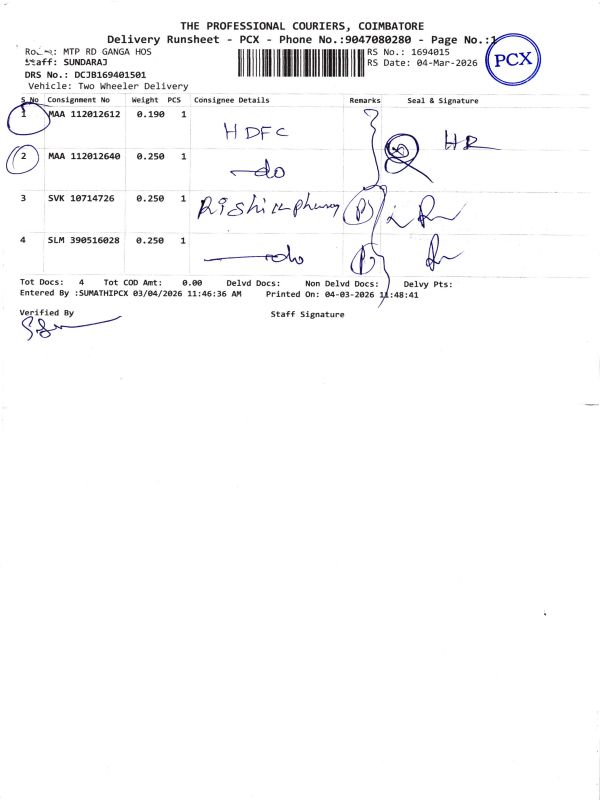 THE PROFESSIONAL COURIERS, COIMBATORE
Delivery Runsheet - PCX - Phone No.:9047080280 - Page No.:1
MTP RD GANGA HOS
RS No.: 1694015
PCX
Staff: SUNDARAJ
RS Date: 04-Mar-2026
DRS No.: DCJB169401501
Vehicle: Two Wheeler Delivery
S.No Consignment No Weight PCS Consignee Details Remarks Seal & Signature
1 MAA 112012612 0.190 1 HDFC
2 MAA 112012640 0.250 1 do
3 SVK 10714726 0.250 1 (P)
4 SLM 390516028 0.250 1 do (P)
Tot Docs: 4 Tot COD Amt: 0.00 Delvd Docs: Non Delvd Docs: Delvy Pts:
Entered By :SUMATHIPCX 03/04/2026 11:46:36 AM Printed On: 04-03-2026 11:48:41
Verified By
Staff Signature